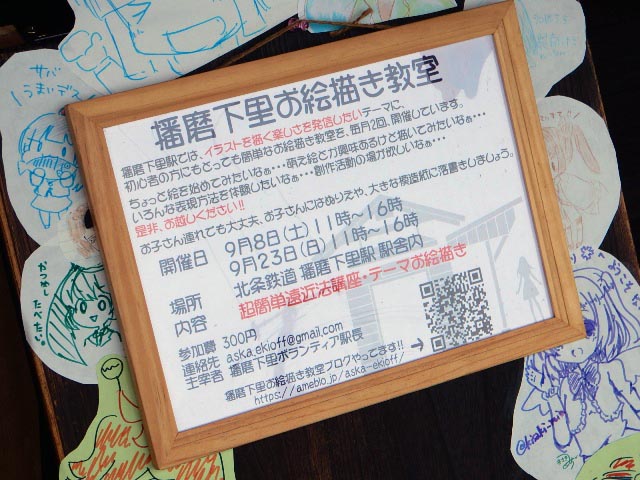 サバ
うまいデス
かつめし
たべたい。
播磨下里お絵描き教室
播磨下里駅では、イラストを描く楽しさを発信したいテーマに、
初心者の方にもとっても簡単なお絵描き教室を、毎月2回、開催しています。
ちょっと絵を始めてみたいなぁ…萌え絵とか興味あるけど描いてみたいなぁ…
いろんな表現方法を体験したいなぁ…創作活動の場が欲しいなぁ…
是非、お越しください!!
お子さん連れても大丈夫、お子さんにはぬりえや、大きな模造紙に落書きしましょう。
開催日 9月8日(土)11時～16時
9月23日(日)11時～16時
場所 北条鉄道 播磨下里駅 駅舎内
内容 超簡単遠近法講座・テーマお絵描き
参加費 300円
連絡先 aska.ekioff@gmail.com
主宰者 播磨下里ボランティア駅長
播磨下里お絵描き教室ブログやってます!! →
https://ameblo.jp/aska-ekioff/